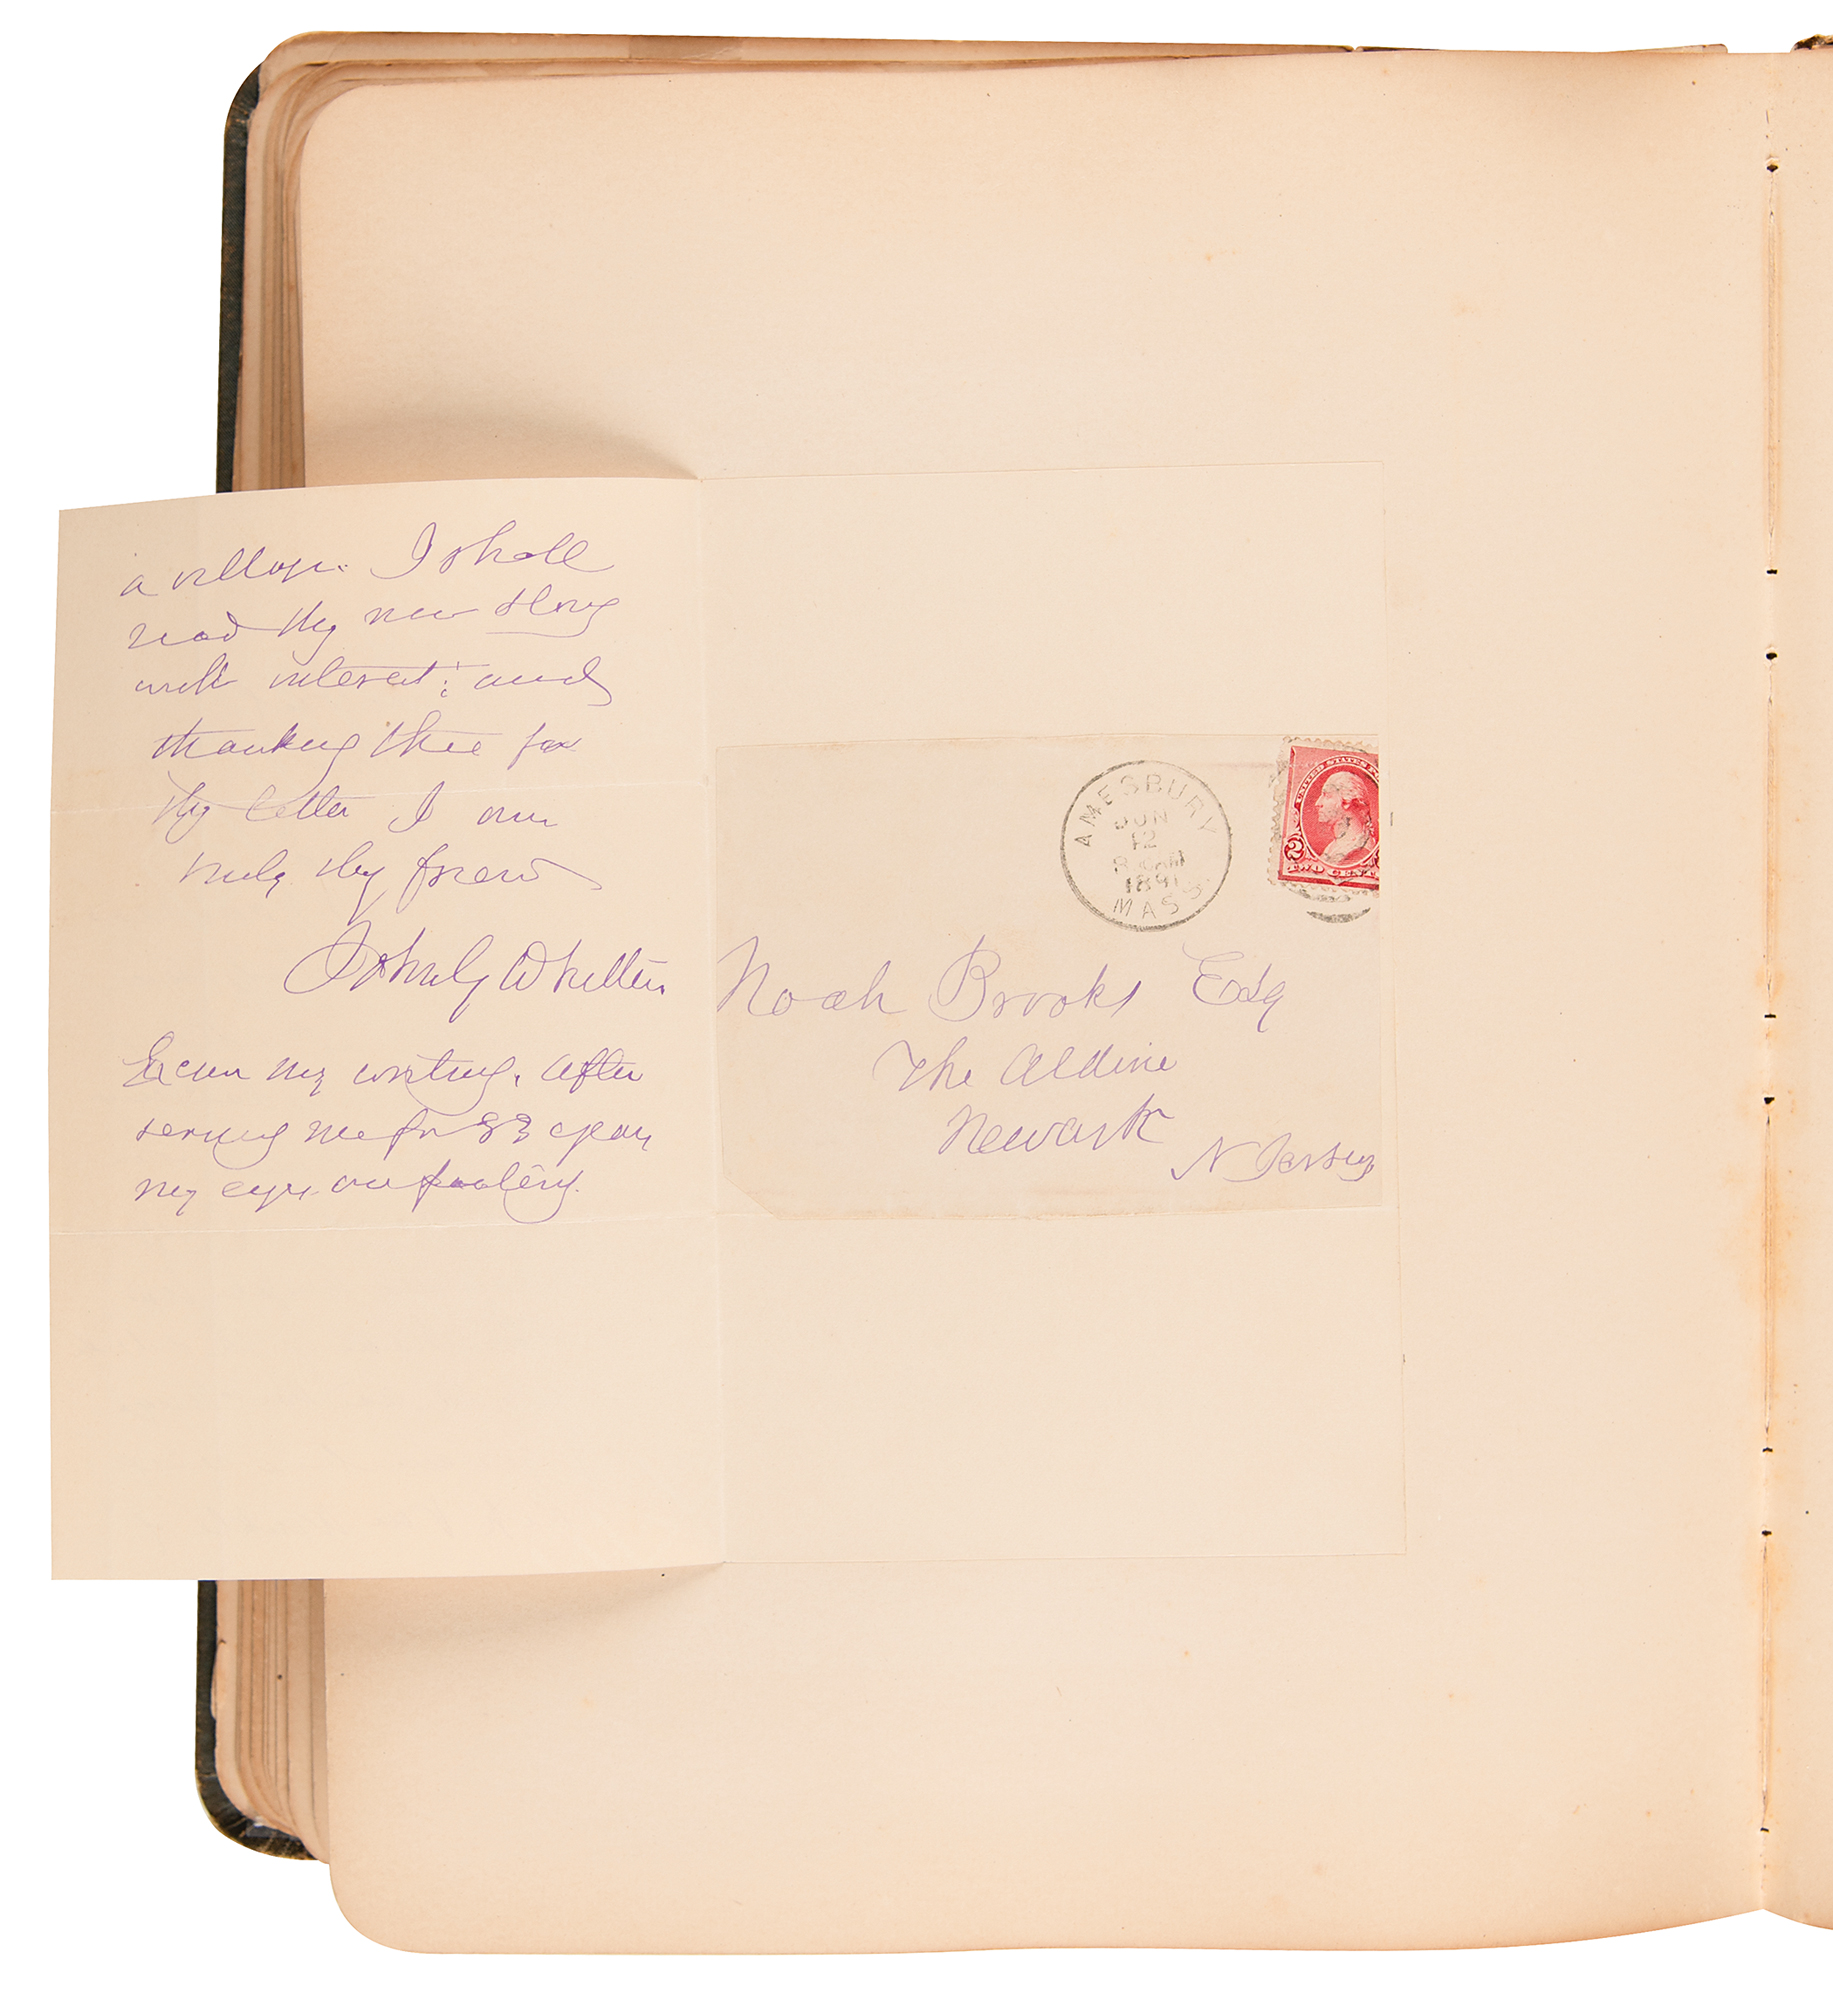 a village. I shall
read thy new story
with interest; and
thanking thee for
thy letter I am
truly thy friend
John G Whittier
Excuse my writing. After
serving me for 83 years
my eyes are failing.
AMESBURY
JUN
12
1891
MASS.
UNITED STATES
2
TWO CENT
Noah Brooks Esq
The Aldine
Newark
N Jersey